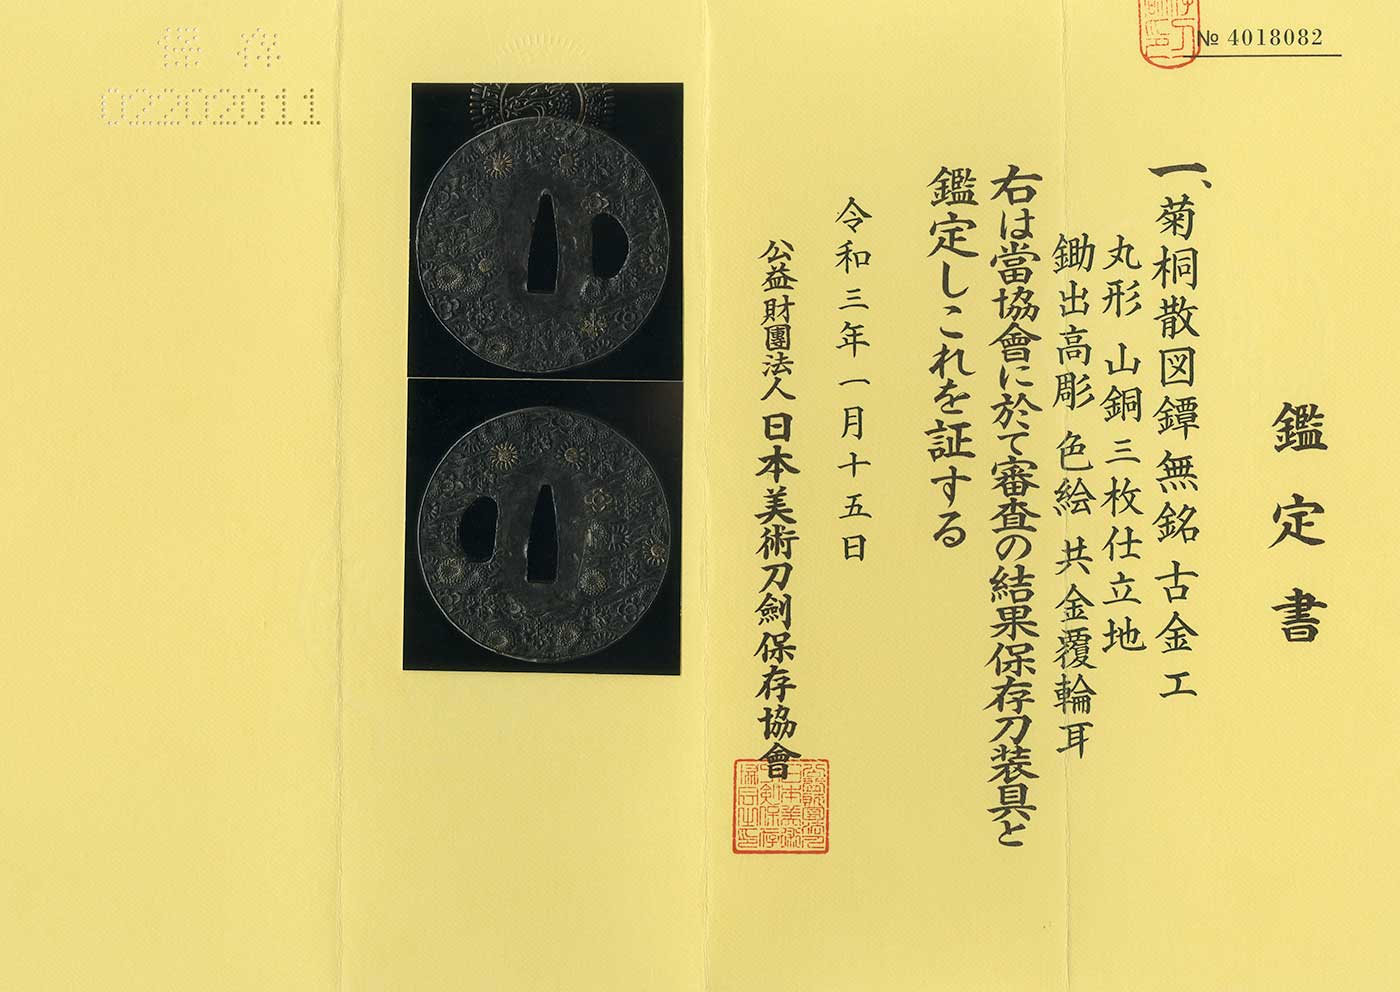 № 4018082
鑑定書
一、菊桐散図鐔 無銘 古金工
丸形 山銅三枚仕立地
鋤出高彫 色絵 共金覆輪耳
右は當協會に於て審査の結果保存刀装具と
鑑定しこれを証する
令和三年一月十五日
公益財團法人 日本美術刀劍保存協會
保存
02202011